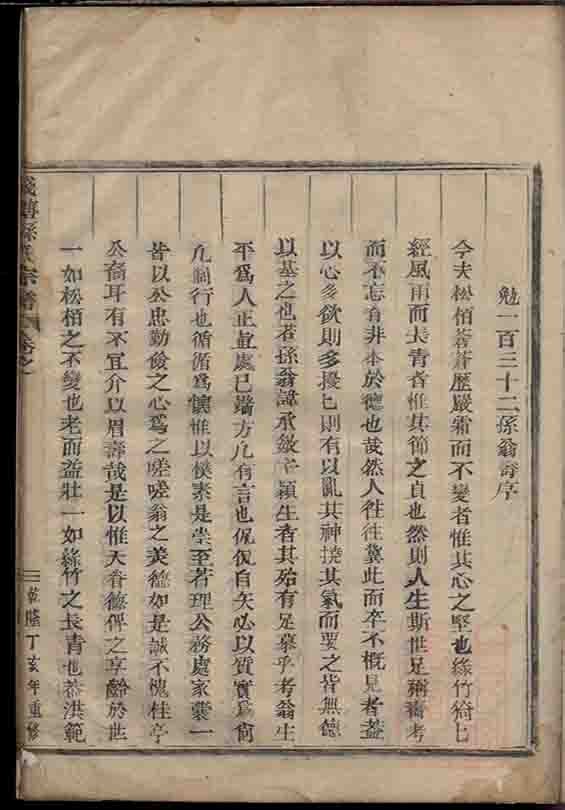 勉一百三十二孫翁壽序
今夫松栢蒼蒼歷嚴霜而不變者惟其心之堅也綠竹猗匕
經風雨而長青者惟其節之貞也然則人生斯世足稱壽考
而不忘者非本於德也哉然人徃徃冀此而卒不概見者葢
以心多欲則多擾匕則有以亂其神撓其氣而要之皆無德
以基之也若孫翁諱承斂字穎生者其殆有足摹乎考翁生
平爲人正直處已端方凡有言也侃侃自矢必以質實爲尙
凡制行也循循爲懷惟以樸素是崇至若理公務處家業一
皆以公忠勤儉之心爲之嗟嗟翁之美德如是誠不愧桂亭
公裔耳有不宜介以眉壽哉是以惟天眷德俾之享齡於世
一如松栢之不變也老而益壯一如綠竹之長青也葢洪範
孫氏宗譜 卷之
乾隆丁亥年重修